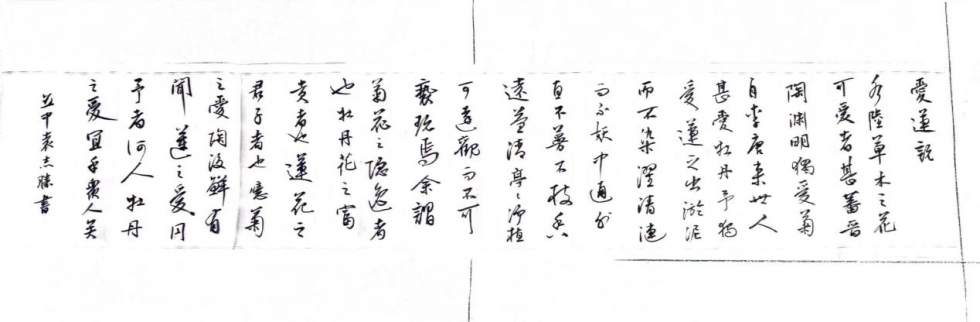 愛蓮說
水陸草木之花
可愛者甚蕃晉
陶渊明獨愛菊
自李唐來世人
甚愛牡丹予独
愛蓮之出淤泥
而不染濯清漣
而不妖中通外
直不蔓不枝香
遠益清亭々净植
可遠觀而不可
褻玩焉余謂
菊花之隐逸者
也牡丹花之富
貴者也蓮花之
君子者也噫菊
之愛陶後鮮有
聞蓮之愛同
予者何人牡丹
之愛宜乎眾人矣
袁志勝書